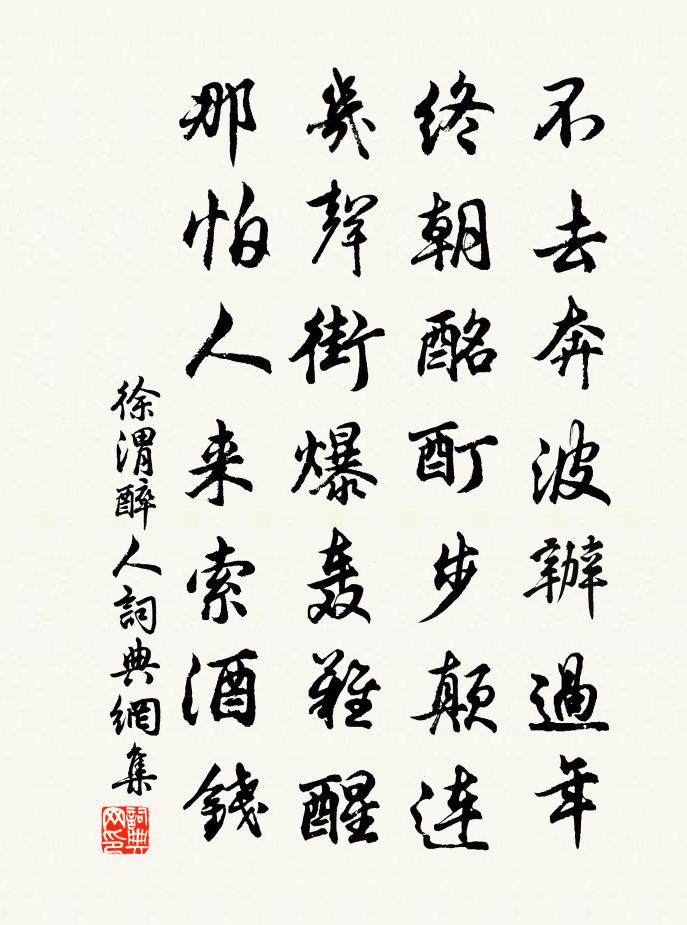 不去奔波辦過年
終朝酩酊步顛連
幾聲街爆轰難醒
那怕人来索酒錢
徐渭醉人詞典網集
詞典網印